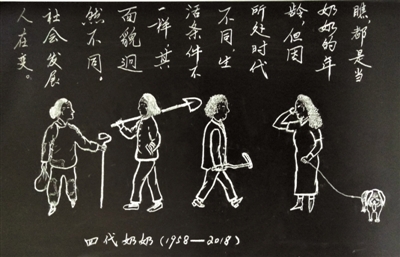 瞧都是当
奶奶的年
龄,但因
所处时代
不同,生
活条件不
一样,其
面貌迥
然不同。
社会发展
人在变。
四代奶奶(1958—2018)